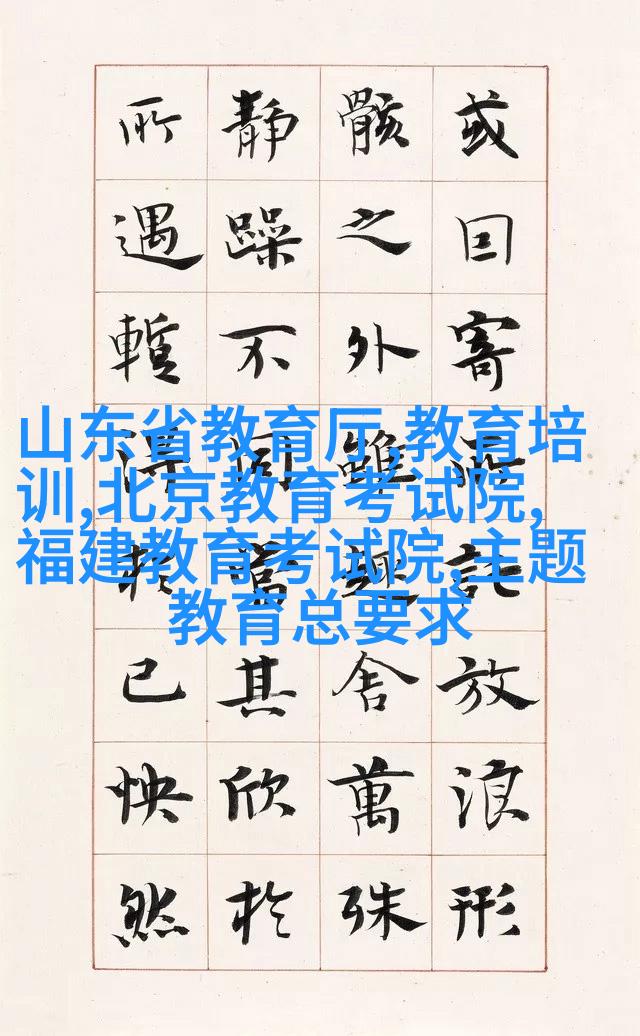 或囙寄所託放浪形
骸之外雖趣舍萬殊
静躁不同當其欣於
所遇蹔得於己怏然
山东省教育厅,教育培
训,北京教育考试院,
福建教育考试院,主题
教育总要求